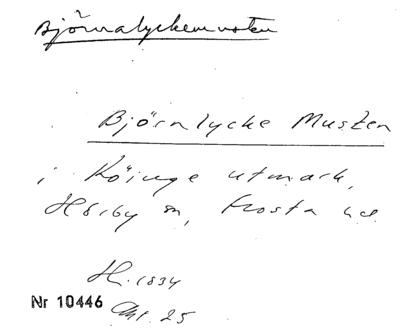 Björnalyckemosten
Björnlycke Musten
i Köinge utmark,
Hörby sn, Frosta hd
H. 1834
Nr 10446
Akt. 25